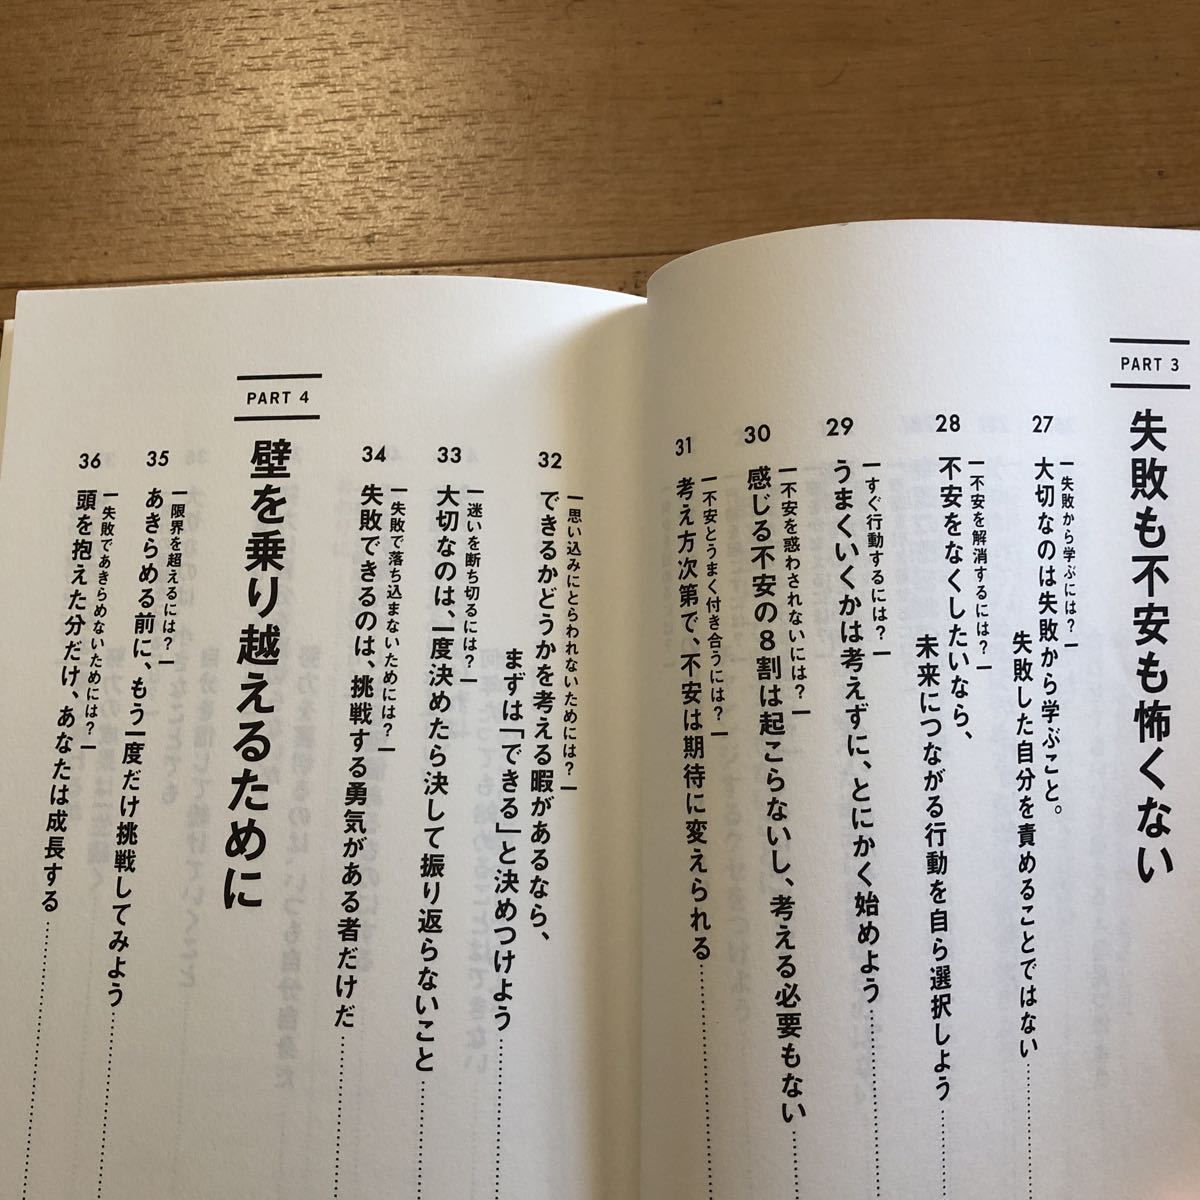 PART 3
失敗も不安も怖くない
27
―失敗から学ぶには?―
大切なのは失敗から学ぶこと。
失敗した自分を責めることではない
28
―不安を解消するには?―
不安をなくしたいなら、
未来につながる行動を自ら選択しよう
29
―すぐ行動するには?―
うまくいくかは考えずに、とにかく始めよう
30
―不安を惑わされないには?―
感じる不安の8割は起こらないし、考える必要もない
31
―不安とうまく付き合うには?―
考え方次第で、不安は期待に変えられる
32
―思い込みにとらわれないためには?―
できるかどうかを考える暇があるなら、
まずは「できる」と決めつけよう
33
―迷いを断ち切るには?―
大切なのは、一度決めたら決して振り返らないこと
34
―失敗で落ち込まないためには?―
失敗できるのは、挑戦する勇気がある者だけだ
PART 4
壁を乗り越えるために
35
―限界を超えるには?―
あきらめる前に、もう一度だけ挑戦してみよう
36
―失敗であきらめないためには?―
頭を抱えた分だけ、あなたは成長する